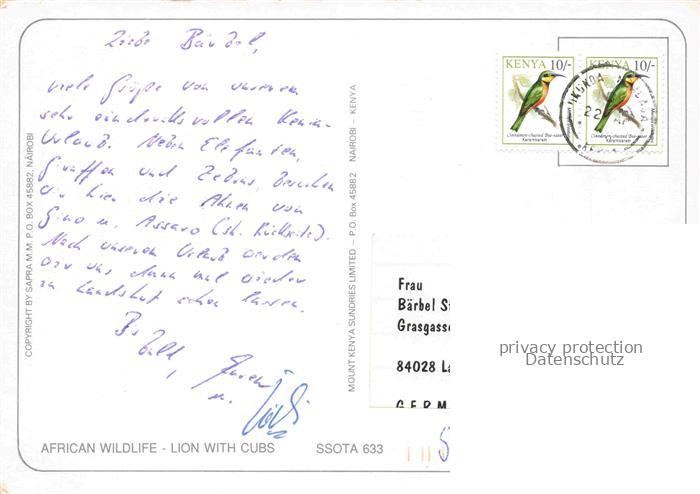 Liebe Bärbel,
viele Grüße von unserem
sehr eindrucksvollen Kenia-
Urlaub. Neben Elefanten,
Giraffen und Zebras, besuchen
wir hier die Ahnen von
Gino u. Assaro (sh. Rückseite).
Nach unserem Urlaub werden
wir uns dann mal wieder
in Landshut sehen lassen.
Bis bald,
u.
COPYRIGHT BY SAPRA M.M. P.O. BOX 45882, NAIROBI
MOUNT KENYA SUNDRIES LIMITED — P.O. Box 45882 NAIROBI — KENYA
KENYA 10/-
Cinnamon-chested Bee-eater
KENYA 10/-
Cinnamon-chested Bee-eater
22
Frau
Bärbel St
Grasgasse
84028 La
GERM
privacy protection
Datenschutz
AFRICAN WILDLIFE - LION WITH CUBS SSOTA 633
5